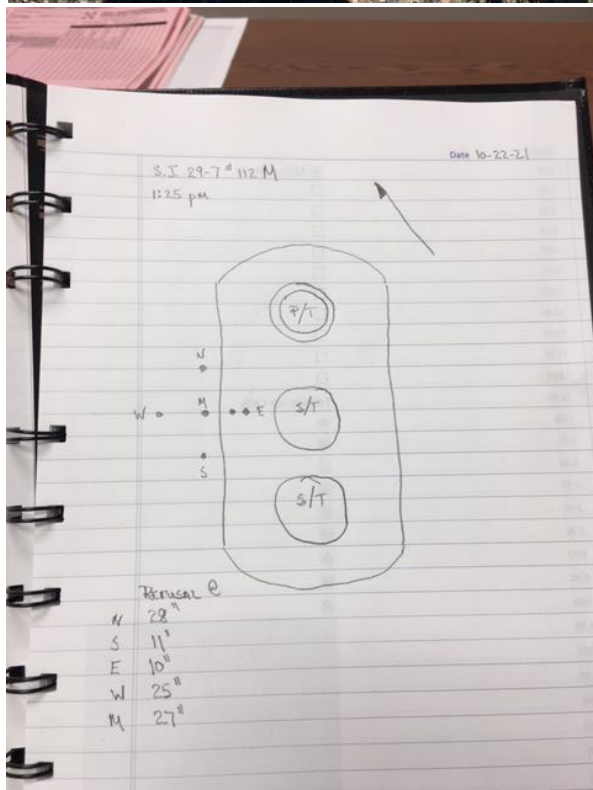 Date 10-22-21
S.I 29-7 # 112 M
1:25 pm
P/T
N
W M E S/T
S
S/T
Refusal @
N 28"
S 11"
E 10"
W 25"
M 27"